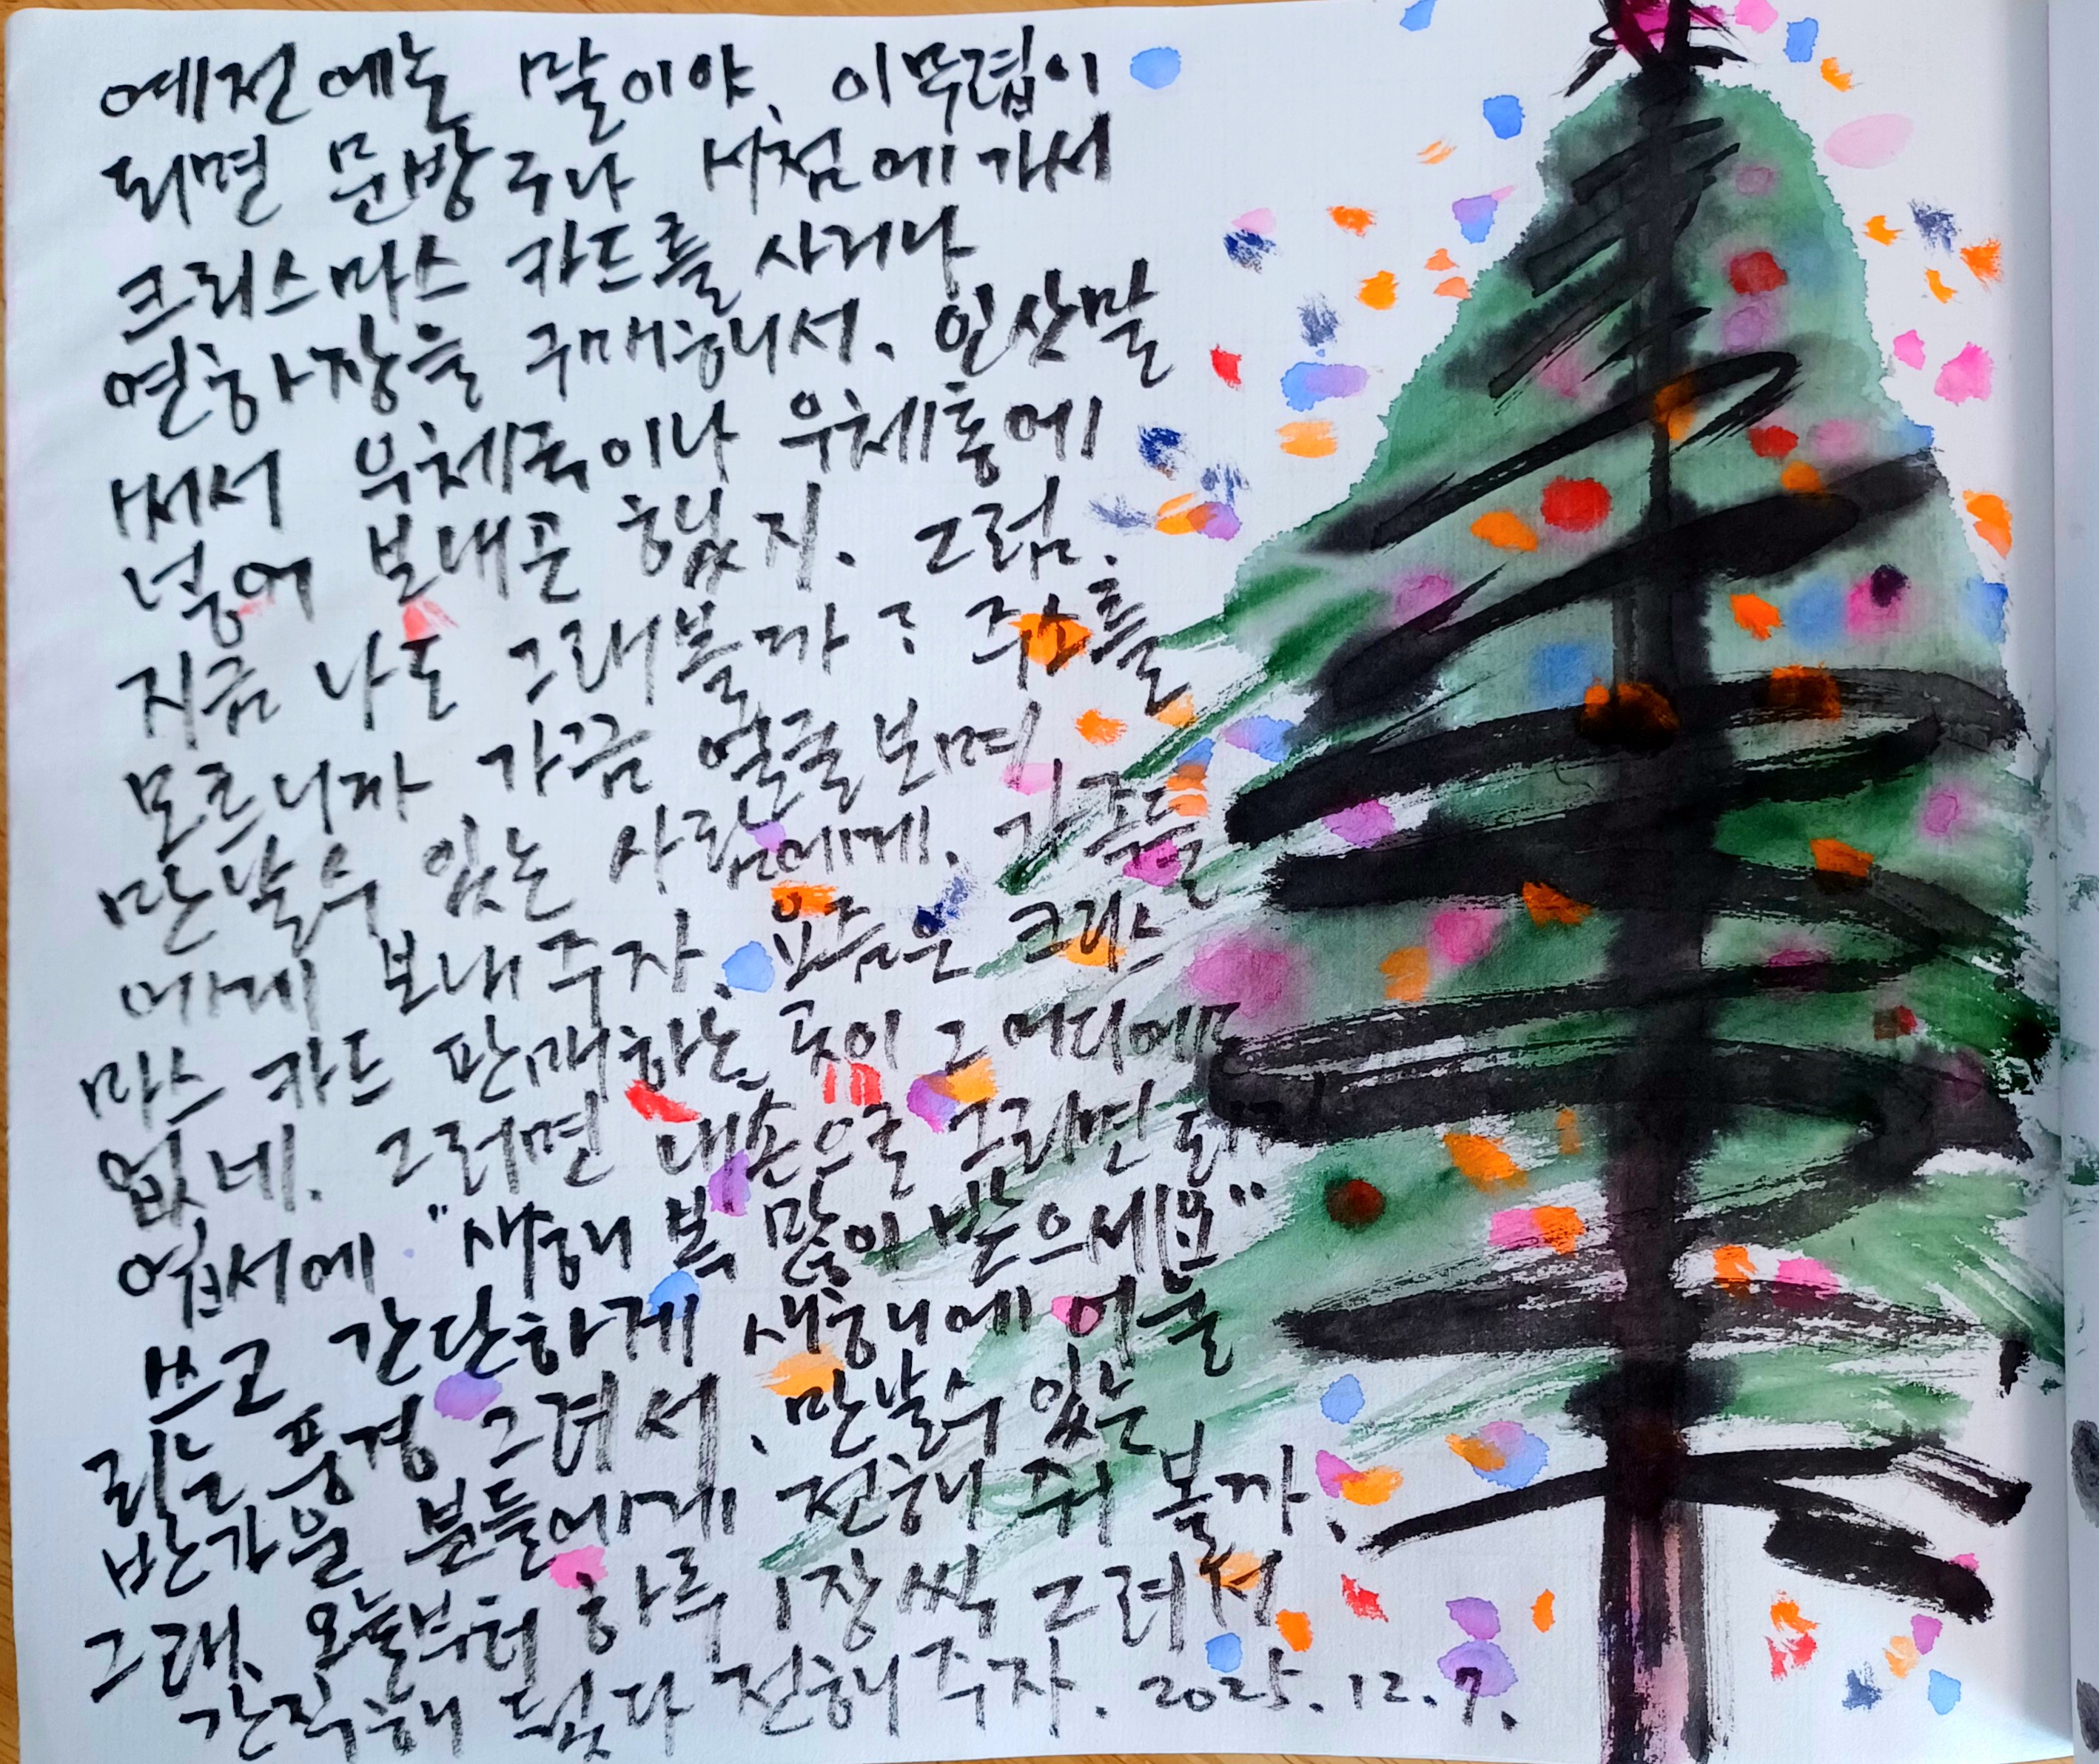 예전에는 말이야, 이무렵이
되면 문방구나 서점에 가서
크리스마스 카드를 사거나
연하장을 구매해서, 인삿말
써서 우체국이나 우체통에
넣어 보내곤 했지. 그럼,
지금 나도 그래볼까? 주소를
모르니까 가끔 얼굴 보며
만날수 있는 사람에게, 가족들
에게 보내주자. 요즘은 크리스
마스 카드 판매하는 곳이 그 어디에도
없네. 그러면 내손으로 그리면 되지
엽서에 "새해 복 많이 받으세요"
쓰고 간단하게 새해에 어울
리는 풍경 그려서, 만날수 있는
반가운 분들에게 전해 줘 볼까,
그래, 오늘부터 하루 1장씩 그려서
간직해 뒀다 전해주자. 2025.12.7.